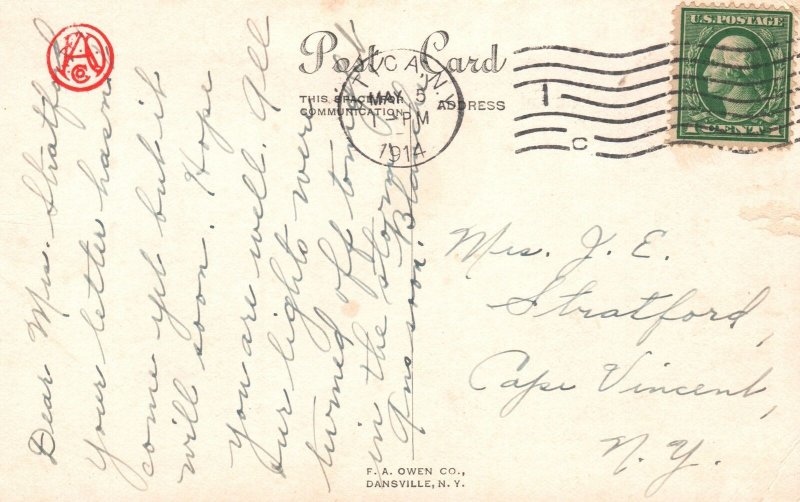 Post Card
THIS SPACE FOR
COMMUNICATION
ADDRESS
UTICA, N.Y.
MAY 3
PM
1914
1
C
U.S. POSTAGE
1 CENT 1
Dear Mrs. Stratford
Your letter hasn't
come yet but it
will soon. Hope
you are well. All
our lights were
turned off tonight
in the storm.
Ans soon. Blanche
Mrs. J. E.
Stratford,
Cape Vincent,
N. Y.
F. A. OWEN CO.,
DANSVILLE, N. Y.